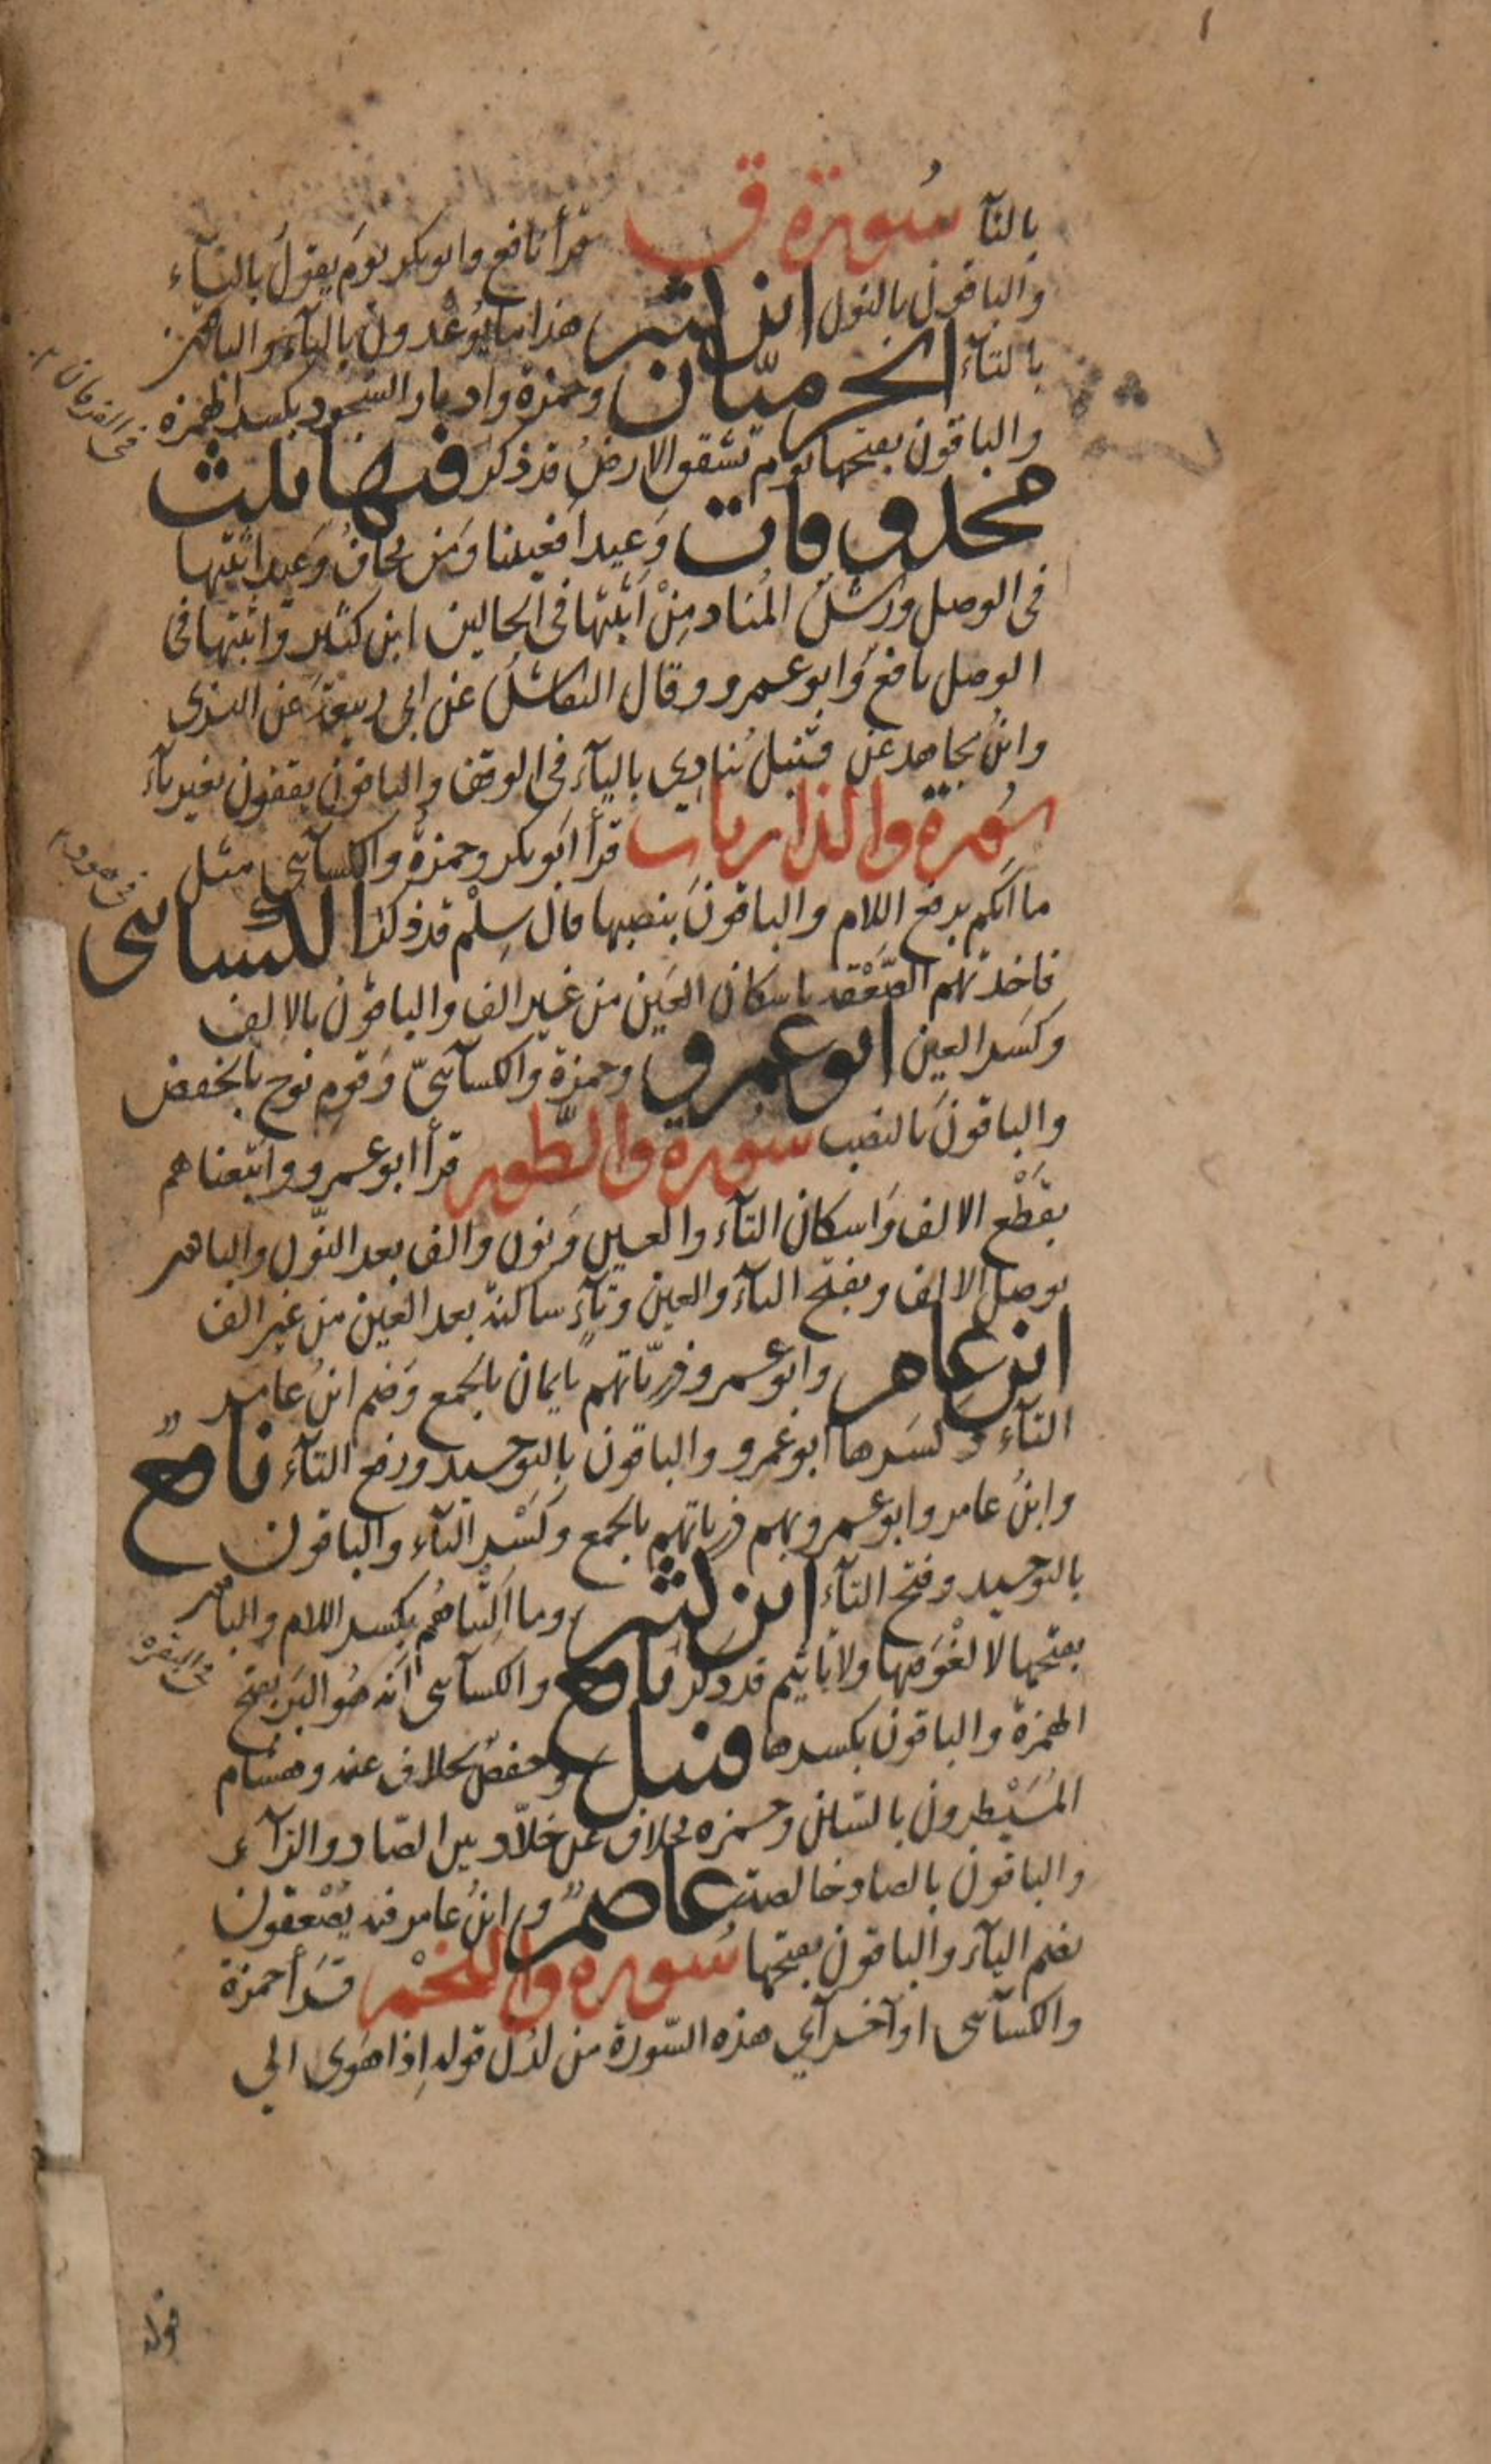 بالتآ سُورة ق قرأ نافع وابوبكر يوَم يقولُ باليآء
والباقون بالنون ابن كثير هذا ما يُوعْدون باليآء والباقون
بالتآء الحرميّان وحمزة وادبار السجود بكسر الهمزة
والباقون بفتحها يوم تشقق الارضُ قد ذكر فيها ثلث
في الفرقان
محذوفات وَعيد أفعيينا وَمَن يخافُ وَعيد اثبتها
في الوصل ورش المُناد مِنْ أثبتها في الحالين ابن كثير وَاثبتها في
الوصل نافع وَابو عمرو وقال النقاش عن ابي ربيعة عَن البزي
وابنُ مجاهد عن قنبل يُنادِي باليآء في الوقف والباقون يقفون بغير يآء
سُورة والذاريات قرأ ابوبكر وحمزةُ والكسآئي مثل
ما أنكم برفع اللام والباقونَ بنصبها قال سِلْم قد ذكر الكسائى
في هود
فاخذتهم الصَّعْقة باسكان العَين من غير الف والباقون بالالف
وكسر العين ابو عمرو وحمزة والكسآئيّ وَقوم نوح بالخفض
والباقونَ بالنصب سُورة والطّور قرأ ابو عمرو وَاتبعناهم
بقَطْع الالف وَاسكان التآء والعين وَنون والف بعد النّون والباقون
بوصل الالف وبفتح التآء والعين وتآءٍ ساكنة بعد العين من غير الف
ابن عامر وابو عمرو ذريّاتهم بايمان بالجمع وَضم ابنُ عامر
التآء وكسَرها ابو عَمرو والباقون بالتوحيد ورفع التآء نافعٌ
وابنُ عامر وابو عمرو بهم ذرياتهم بالجمع وكَسْر التآء والباقون
بالتوحيد وفتح التآء ابن كثير وما اَلِتْناهُم بكسر اللام والباقون
بفتحها لا لغْوَ فيها ولا تاثيم قد ذكر نافع والكسآئى أنه هُو البَر بفتح
في البقرة
الهمزة والباقون بكسرها قنبل وحفصٌ بخلاف عنه وهشام
المُسَيْطرون بالسّين وحمزه بخلاف عَن خلّاد بين الصّاد والزآء
والباقون بالصاد خالصة عاصمٌ وابنُ عامر فيه يُصْعقون
بضم اليآء والباقون بفتحها سُورة والنجْم قرأ حمزة
والكسآئى اوآخر آي هذه السّورة من لدن قوله اِذا هَوى الي
قوله